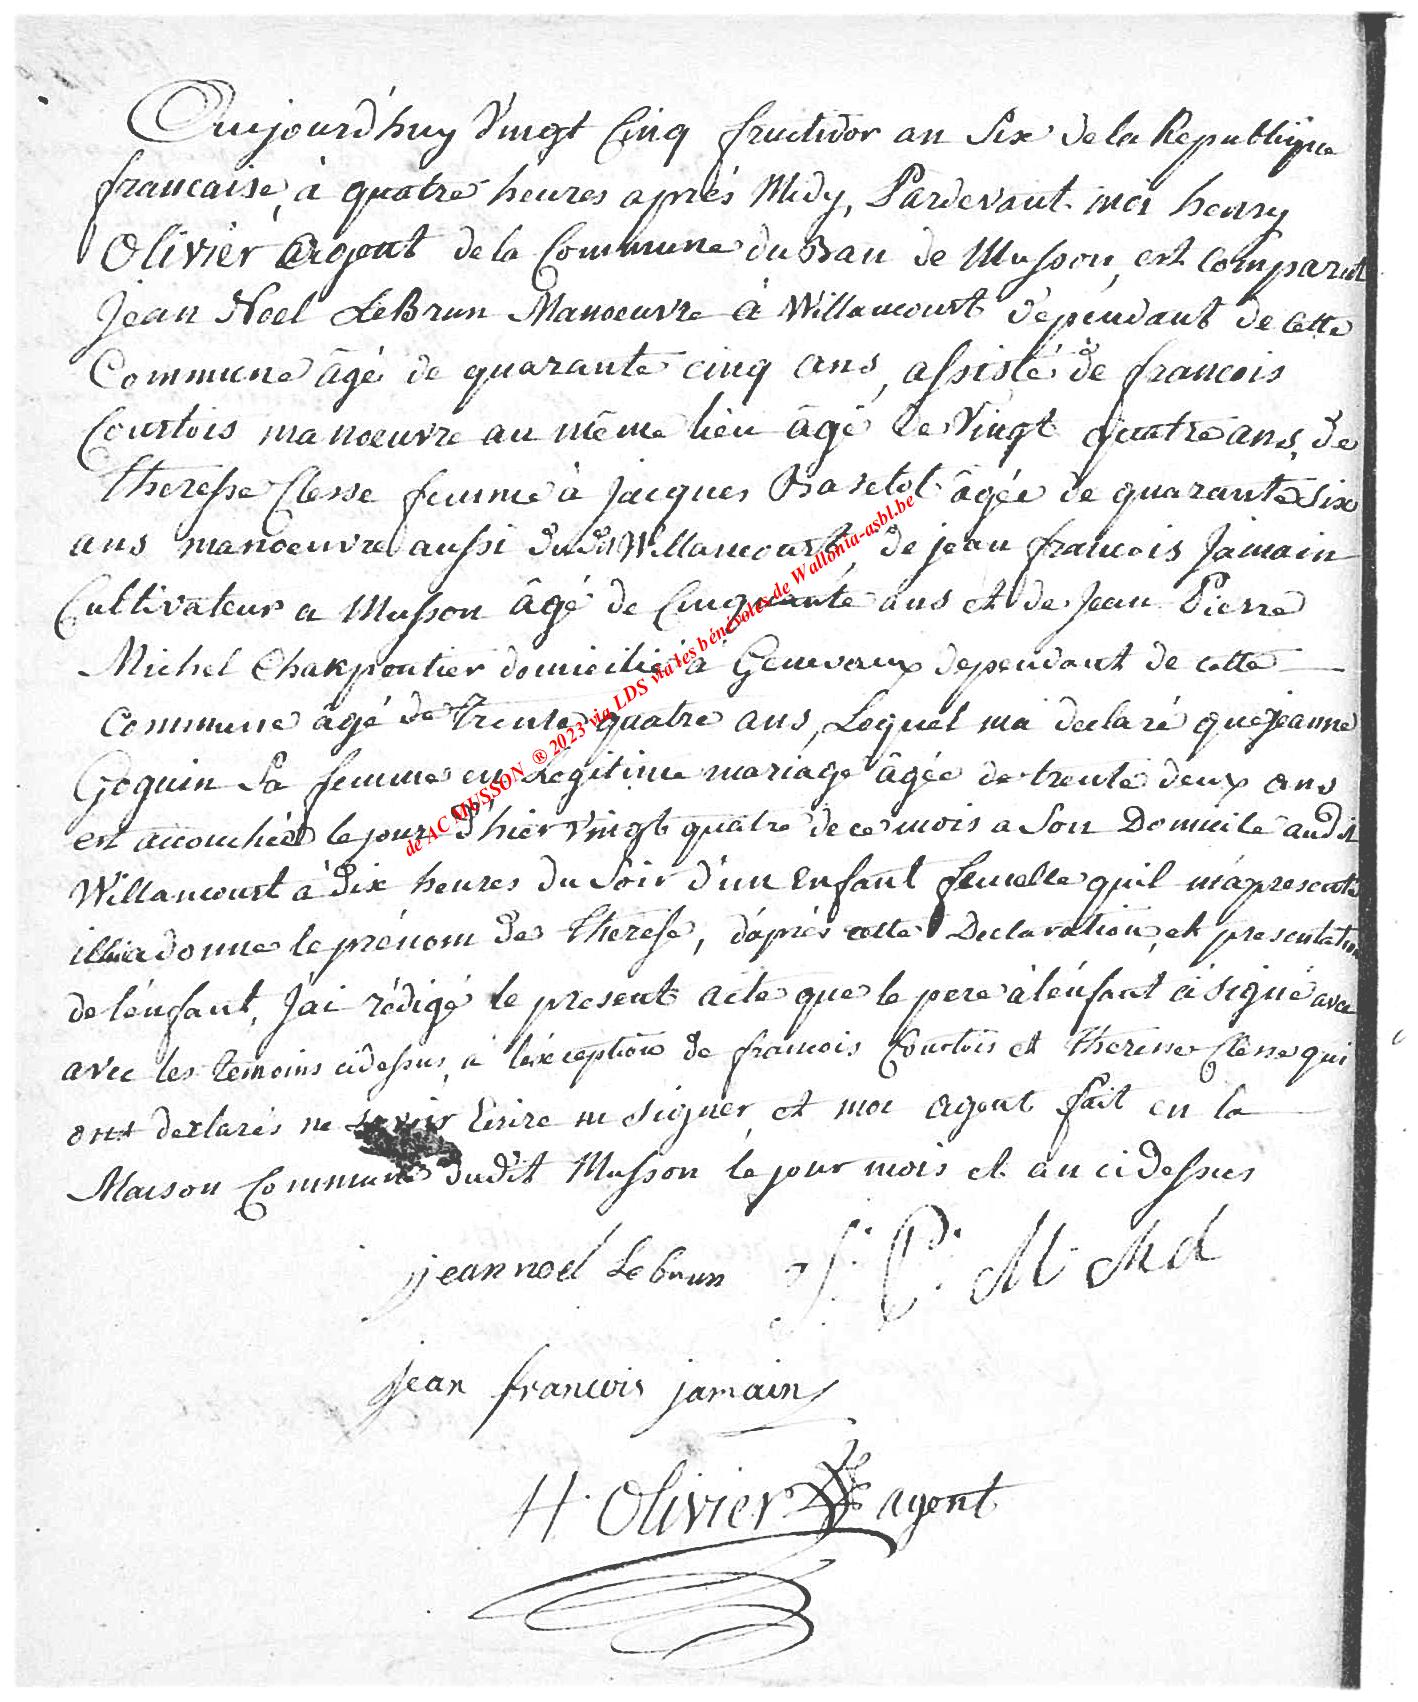 Aujourd'huy Vingt Cinq fructidor an Six de la Republique
francaise, à quatre heures aprés Midy, Pardevant moi henry
Olivier Agent de la Commune du Ban de Musson, est Comparut
Jean Noel LeBrun Manoeuvre à Willancourt dépendant de Cette
Commune âgé de quarante cinq ans, assisté de francois
Courtois manoeuvre au même lieu âgé de Vingt quatre ans, de
theresse Clesse femme à Jacques Baselot âgée de quarante six
ans manoeuvre aussi dudit Willancourt, de jean francois Jamain
Cultivateur a Musson âgé de Cinquante ans et de Jean Pierre
Michel Charpentier domicilié à Genevaux dependant de cette
Commune âgé de trente quatre ans, Lequel ma declaré que jeanne
Goguin Sa femme en Legitime mariage âgée de trente deux ans
est accouchée le jour d'hier vingt quatre de ce mois a Son Domicile audit
Willancourt à dix heures du Soir d'un Enfant femelle quil m'a presenté
donne le prénom de therese, d'aprés cette Declaration et presentation
de l'énfant, J'ai rédigé le present acte que le pere à l'énfant à signé avec
avec les temoins cidessus, a l'éxception de francois Courtois et therese Clesse qui
ont declarés ne savoir Ecrire ni signer, et moi agent fait en la
Maison Commune dudit Musson le jour mois et an cidessus
jean noel Lebrun J. P. M. Md
jean francois jamain
H. Olivier agent
de AC MUSSON ® 2023 via LDS via les bénévoles de Wallonia-asbl.be